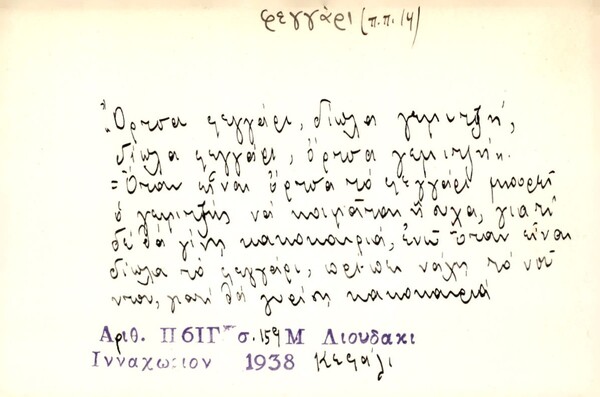 φεγγάρι (π.π. 14)
"Όρτσα φεγγάρι, δίπλα γεμιτζή,
δίπλα φεγγάρι, όρτσα γεμιτζή".
= Όταν είναι όρτσα το φεγγάρι μπορεί
ο γεμιτζής να κοιμάται ήσυχα, γιατί
δε θα γίνη κακοκαιριά, ενώ όταν είναι
δίπλα το φεγγάρι, πρέπει νάχη το νού
ντου, γιατί θα γυρίση κακοκαιριά
Αριθ. Π6ΙΓ σ. 159 Μ Λιουδακι
Ινναχωριον 1938 Κεφάλι